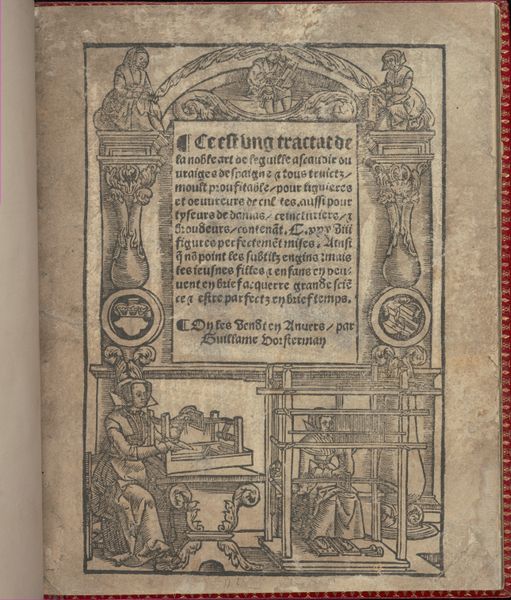 ¶ Ce est ung tractat de
la noble art de leguille ascauoir ou
uraiges de spaigne
moult proufitable / pour
et oeuureurs de aussi pour
tyseurs de damas /
contenāt. C.
figures perfectemēt mises. Ainsi
point les subtilz engins: mais
les ieusnes filles & enfans en peu-
uent en brief acquerre grande sciē
ce & estre parfectz en brief temps.
¶ On les vendt en Anvers / par
Guillame Vorsterman